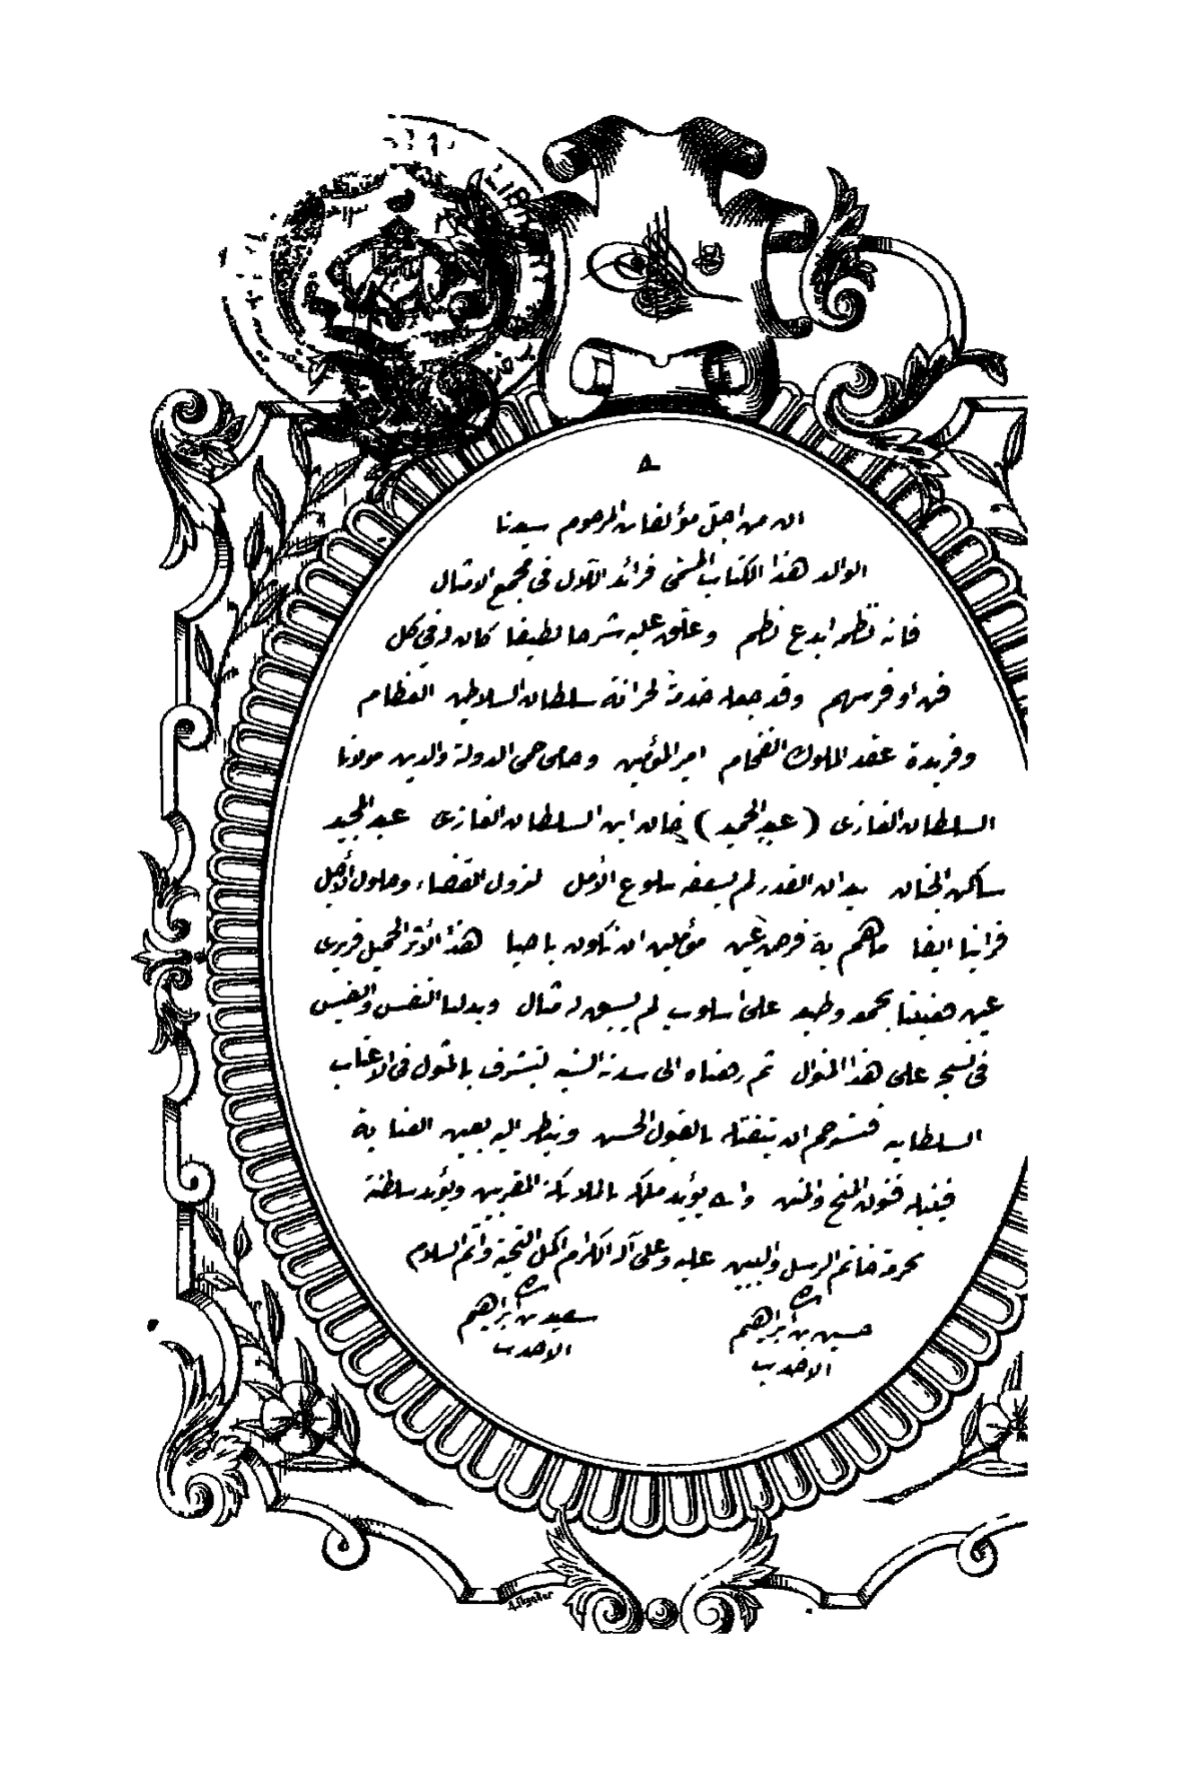 LIBRARY
ان من اجلّ مؤلفات المرحوم سيدنا
الوالد هذا الكتاب المسمى فرائد اللآل في مجمع الامثال
فانه نظمه ابدع نظم وعلق عليه شرحا لطيفا كان له في كل
فن اوفر سهم وقد جعله خدمة لخزانة سلطان السلاطين العظام
وفريدة عقد الملوك الفخام امير المؤمنين وحامى حمى الدولة والدين مولانا
السلطان الغازى (عبد الحميد) خان ابن السلطان الغازى عبد المجيد
ساكن الجنان بيد ان القدر لم يسعفه ببلوغ الأمل لنزول القضاء وحلول الأجل
فرأينا ايفا ما هم به فرض عين مؤملين ان نكون باحيا هذا الأثر الجميل قريرى
عين فعنينا بجمعه وطبعه على اسلوب لم يسبق له مثال وبذلنا النفس والنفيس
في نسجه على هذا المنوال ثم رفعناه الى سدته السنيه ليتشرف بالمثول في الاعتاب
السلطانيه فنسترحم ان بالقبول الحسن وينظر اليه بعين العناية
فينيله فنون المنح والمنن والله يؤيد ملكه بالملائكة المقربين ويؤيد سلطنته
بحرمة خاتم الرسل والنبيين عليه وعلى آله الكرام اكمل التحية وأتم السلام
حسين بن ابراهيم سعيد بن ابراهيم
الاحدب الاحدب